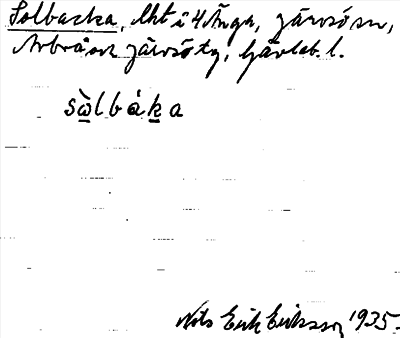 Solbacka, lht i 4 Änga, Järvsö sn,
Arbrå och Järvsö tg, Gävleb. l.
sὼlbáka
Nils Erik Eriksson 1935.